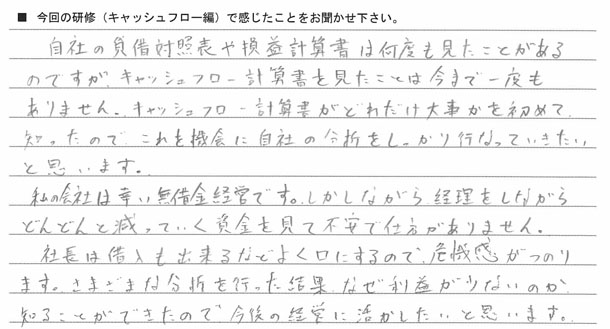 ■ 今回の研修（キャッシュフロー編）で感じたことをお聞かせ下さい。
自社の貸借対照表や損益計算書は何度も見たことがある
のですが、キャッシュフロー計算書を見たことは今まで一度も
ありません。キャッシュフロー計算書がどれだけ大事かを初めて
知ったので、これを機会に自社の分析をしっかり行なっていきたい
と思います。
私の会社は幸い無借金経営です。しかしながら、経理をしながら
どんどんと減っていく資金を見て不安で仕方がありません。
社長は借入も出来るなどよく口にするので、危機感がつのり
ます。さまざまな分析を行った結果、なぜ利益が少ないのか
知ることができたので今後の経営に活かしたいと思います。